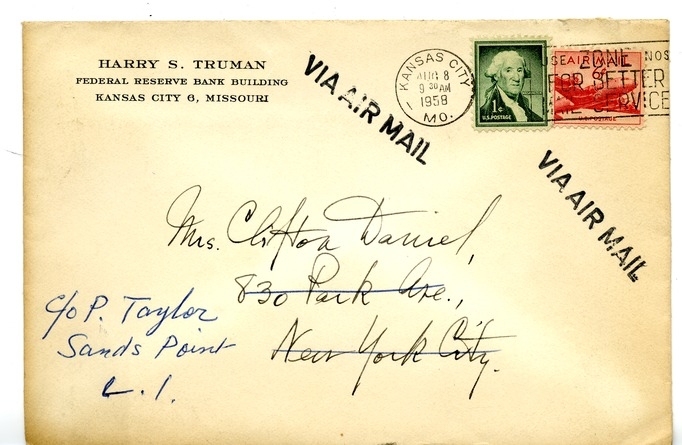 HARRY S. TRUMAN
FEDERAL RESERVE BANK BUILDING
KANSAS CITY 6, MISSOURI
KANSAS CITY
AUG 8
9 30 AM
1958
MO.
1¢
U.S. POSTAGE
AIR MAIL
U.S. POSTAGE
USE ZONE NOS
FOR BETTER
MAIL SERVICE
VIA AIR MAIL
VIA AIR MAIL
Mrs. Clifton Daniel,
830 Park Ave.,
New York City.
c/o P. Taylor
Sands Point
L.I.